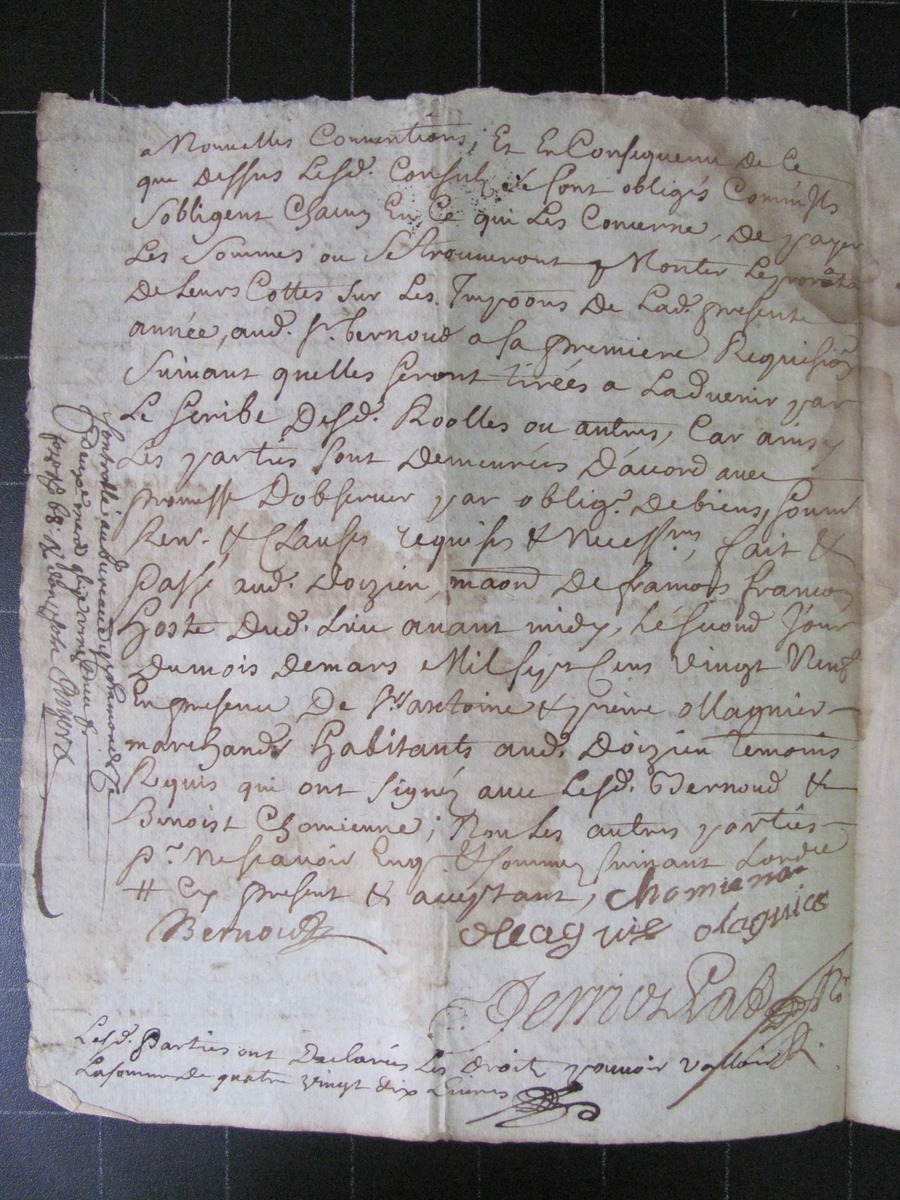 a Nouvelles Conventions; Et En Consequence de Ce
que dessus Lesd. Consulz se sont obligés Comme Ils
sobligent Chacun En Ce qui Les Concerne, de payer
Les Sommes ou Se trouveront Monter Le prorata
de leurs Cottes sur Les Impōons De Lad. presente
année, aud. Sr. bernoud a la premiere Requisiōn
Suivant quelles seront tirées a Ladvenir par
Le scribe Desd. Roolles ou autres, Car ainsy
Les parties sont demeurées D'acord avec
promesse Dobserver par oblig. de biens, soum.
Ren. & Clauses requises & necess.res, fait &
Passé aud. doizieu, maōn De francois
hoste Dud. Lieu avant midy, Le second Jour
du mois de mars Mil sept Cens vingt Neuf
En presence De Srs antoine & pierre Magnier
marchands habitants aud. Doizieu temoins
Requis qui ont signéz avec Lesd. Bernoud &
Benoist Chomienne; Non Les autres parties
pr. ne scavoir Enq. & sommez suivant Lordce
# Cy present & acceptant, Chomienne
Bernoud
Lesd. Parties ont Declarées Les Droits pouvoir valloir
La somme de quatre vingt dix Livres